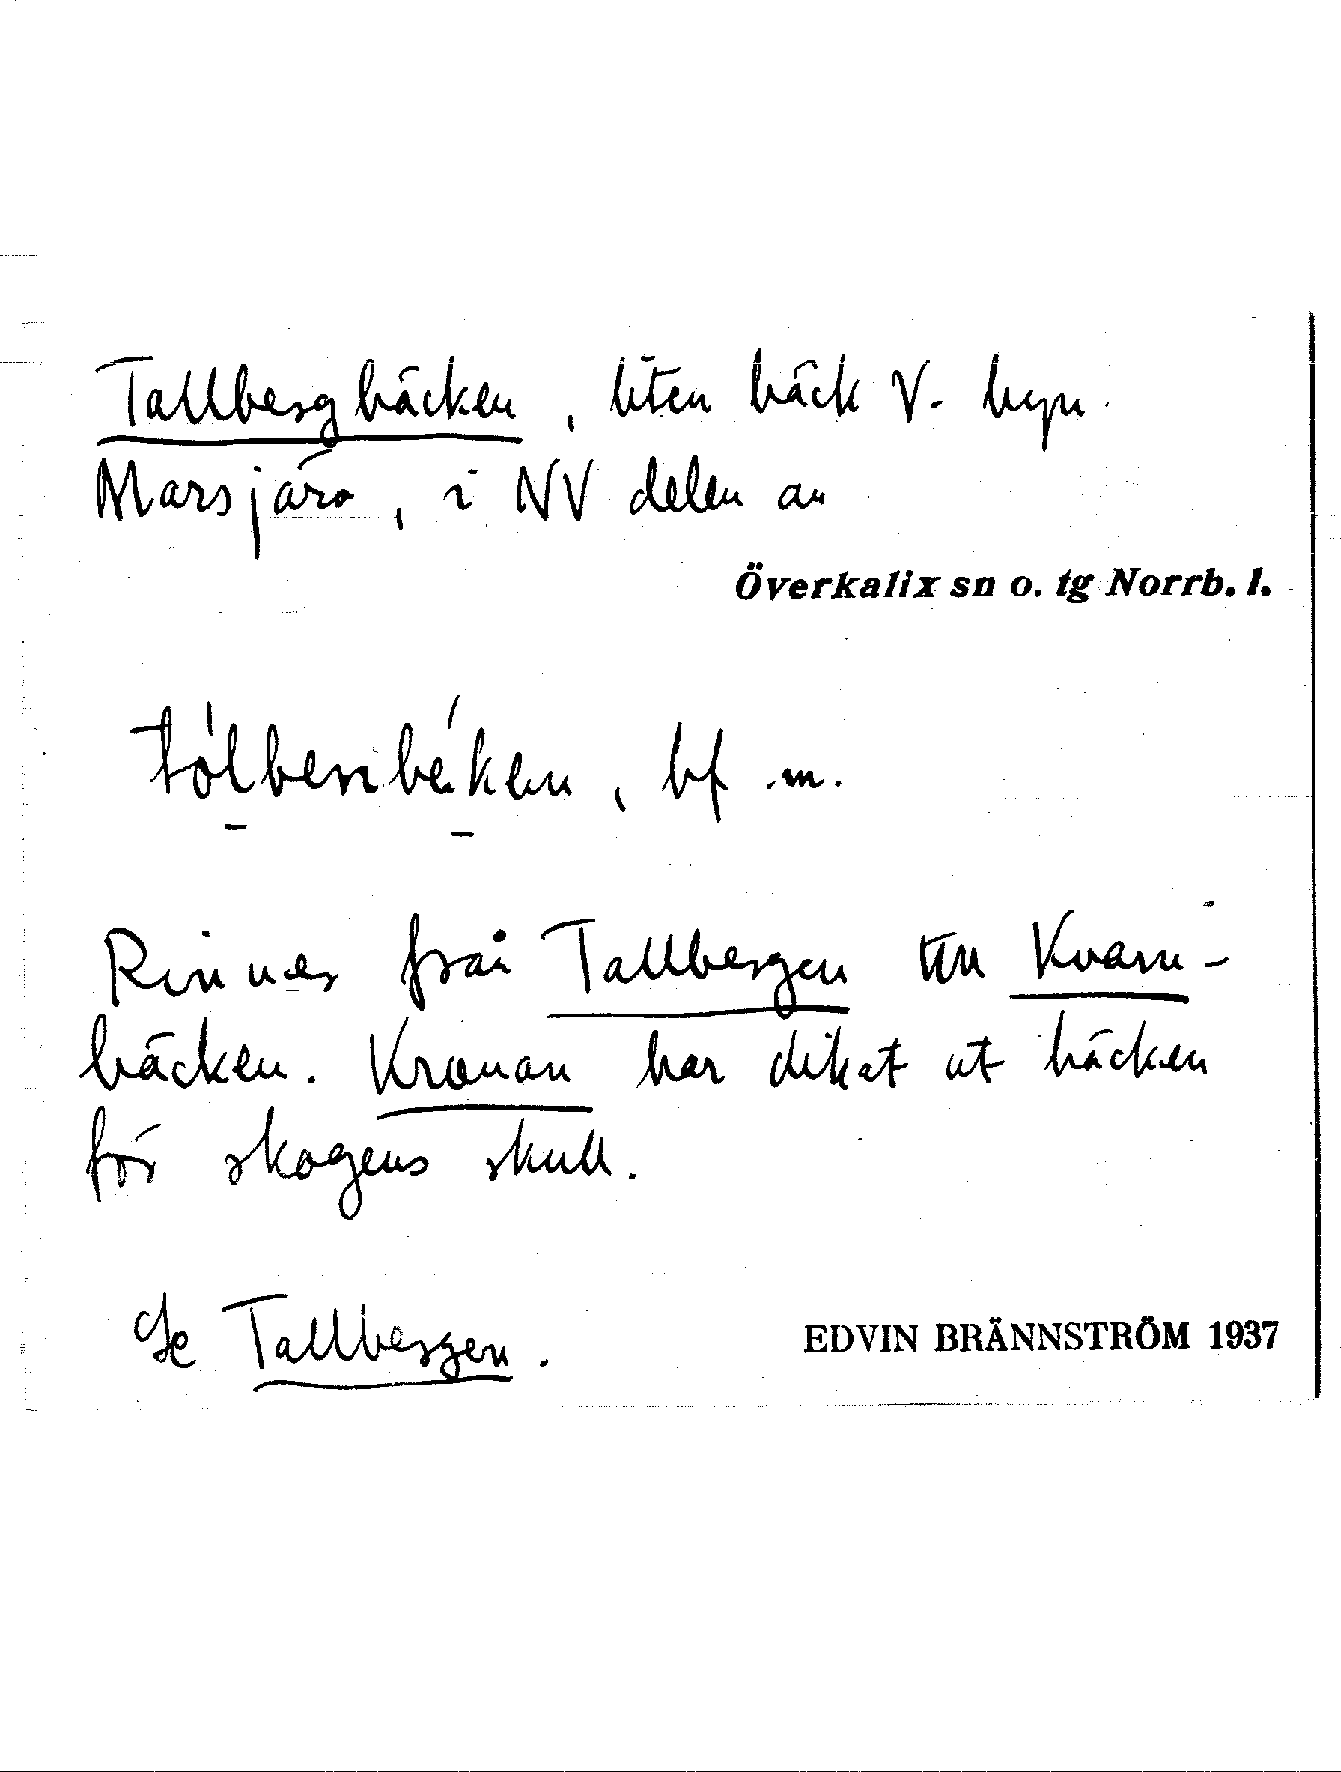 Tallbergbäcken, liten bäck V. byn
Marsjärv, i NV delen av
Överkalix sn o. tg Norrb. l.
bf. m.
Rinner från Tallbergen till Kvarn-
bäcken. Kronan har dikat ut bäcken
för skogens skull.
Se Tallbergen.
EDVIN BRÄNNSTRÖM 1937